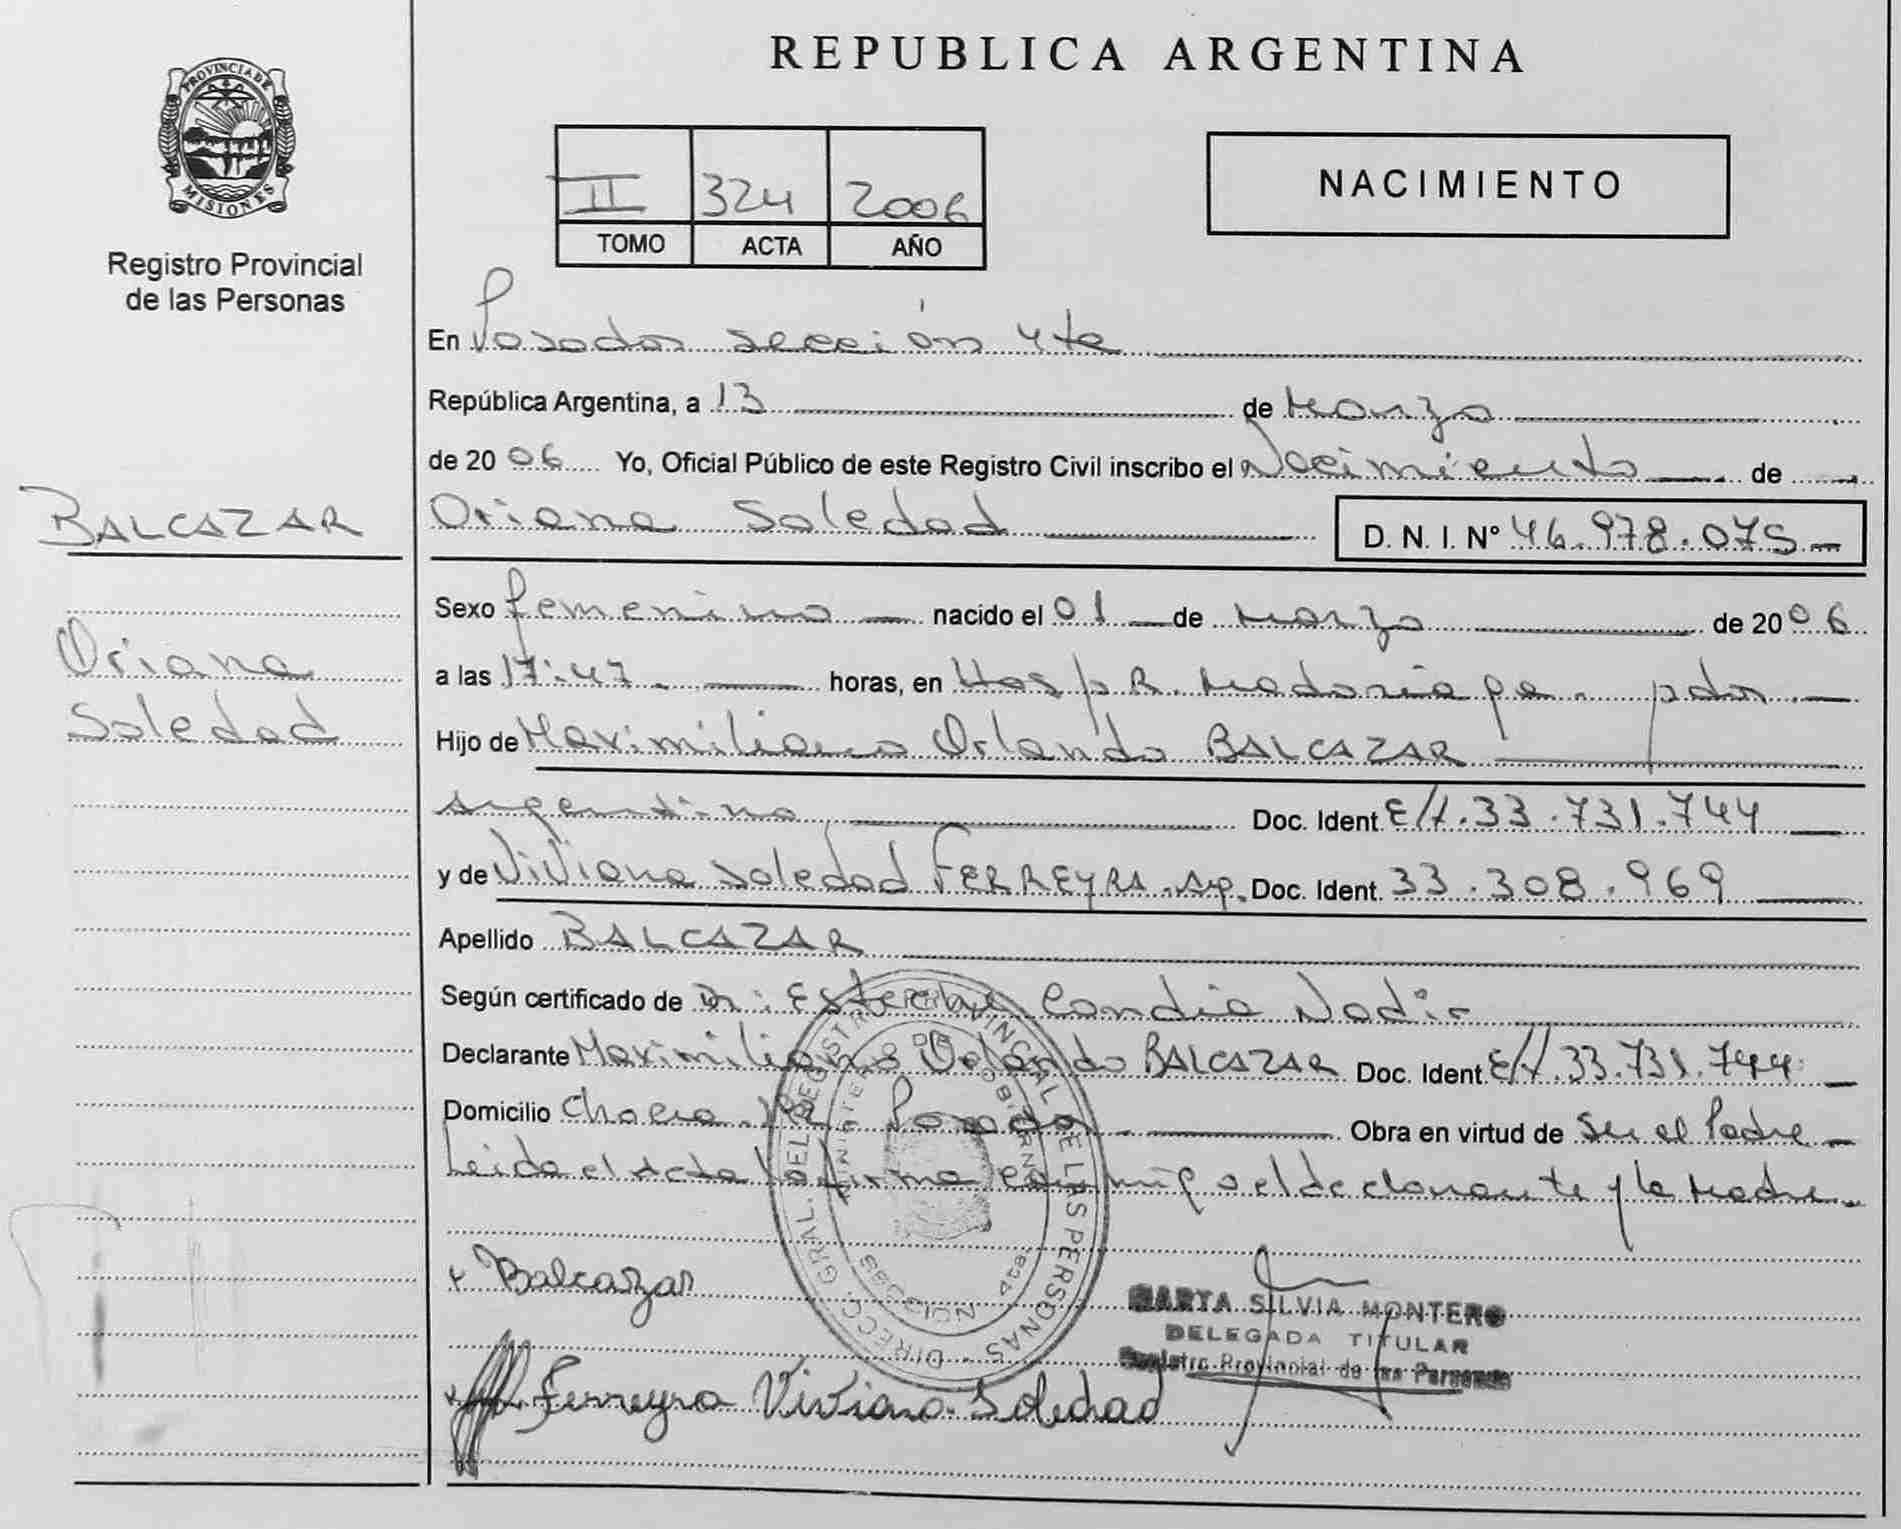 PROVINCIA DE
MISIONES
Registro Provincial
de las Personas
BALCAZAR
Oriana
Soledad
REPUBLICA ARGENTINA
II 324 2006
TOMO ACTA AÑO
NACIMIENTO
En Posadas sección 4ta
República Argentina, a 13 de Marzo
de 2006 Yo, Oficial Público de este Registro Civil inscribo el Nacimiento de
Oriana Soledad D. N. I. N° 46.978.075
Sexo femenino nacido el 01 de Marzo de 2006
a las 17:47 horas, en Hosp R. Madariaga. pdas
Hijo de Maximiliano Orlando BALCAZAR
argentino Doc. Ident. E/t. 33.731.744
y de Viviana Soledad FERREYRA. arg. Doc. Ident. 33.308.969
Apellido BALCAZAR
Según certificado de Dr: Candia Nadir
Declarante Maximiliano Orlando BALCAZAR Doc. Ident. E/t. 33.731.744
Domicilio Chacra Posadas Obra en virtud de Ser el Padre
Leida el Acta la firma conmigo el declarante y la Madre
DIRECC. GRAL. DEL REGISTRO PROVINCIAL DE LAS PERSONAS
MINISTERIO DE GOBIERNO
SECCION 4ta
x Balcazar
MARTA SILVIA MONTERO
DELEGADA TITULAR
Registro Provincial de las Personas
x Ferreyra Viviana Soledad